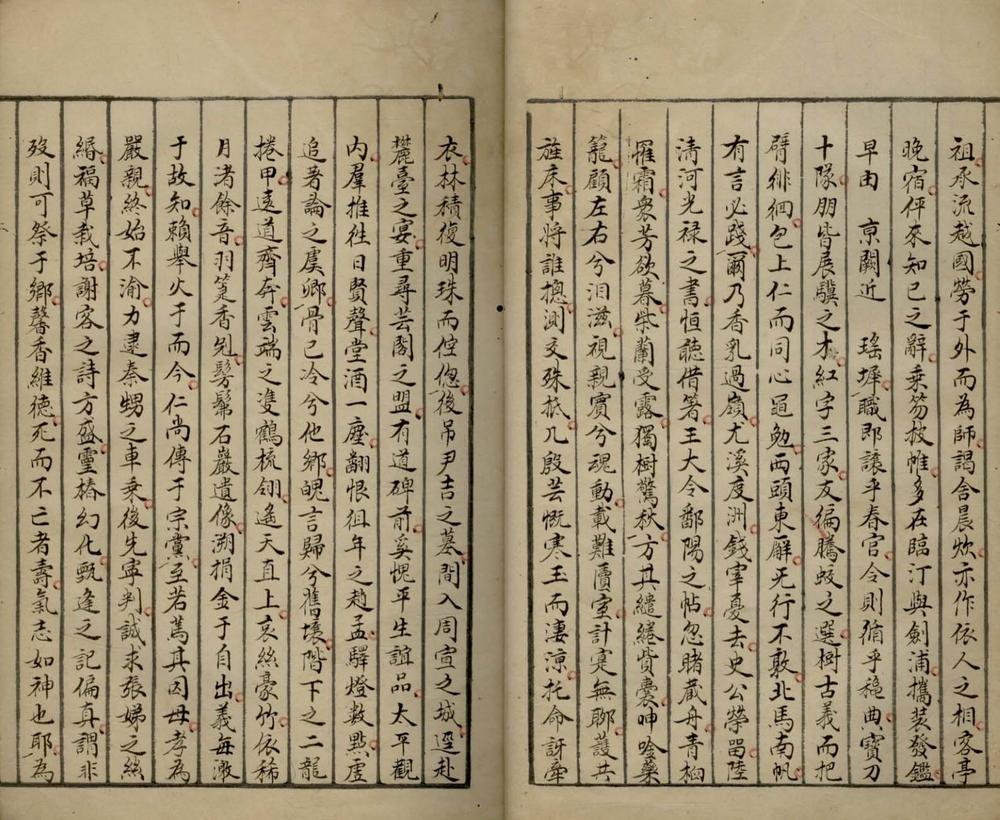 祖承流越國勞于外而為師謁舍晨炊亦作依人之相客亭
晚宿伻來知己之辭乘笏披帷多在臨汀與劍浦攜裝發鑑
早由　京闕近　瑤墀職即讓乎春官令則循乎穐典寶刀
十隊朋皆展驥之才紅字三家友偏騰蛟之選樹古義而把
臂徘徊包上仁而同心黽勉西頭東廨无行不敦北馬南帆
有言必踐爾乃香乳過嶺尤溪度洲錢宰憂去史公榮留陸
清河光祿之書恒聽借箸王大令鄱陽之帖忽賭藏舟青桕
罹霜衆芳欲暮紫蘭受露獨樹驚秋方其繾綣貲囊呻唫藥
籠顧左右兮泪滋視親賓兮魂動載難賣室計寔無聊護共
旌床事將誰摠測交殊抵几殷芸慨寒玉而淒涼托命訝牽
衣林積復明珠而倥傯後吊尹吉之墓間入周宣之城遝赴
麓臺之宴重尋芸閣之盟有道碑前奚愧平生誼品太平觀
内羣推徃日賢聲堂酒一座翻恨徂年之趙孟驛燈數點虛
追著論之虞卿骨已冷兮他鄉魄言歸兮舊壤階下之二龍
捲甲遠道齊奔雲端之隻鶴梳翎遙天直上哀絲豪竹依稀
月渚餘音羽箑香兜髣髴石嚴遺像溯捐金于自出義每激
于故知賴舉火于而今仁尚傳于宗黨至若篤其因母孝為
嚴親終始不渝力逮秦甥之車乘後先寧判誠求張娣之絲
緡福草栽培謝容之詩方盛靈椿幻化甄逢之記偏真謂非
歿則可祭于鄉馨香維德死而不亡者壽氣志如神也耶為